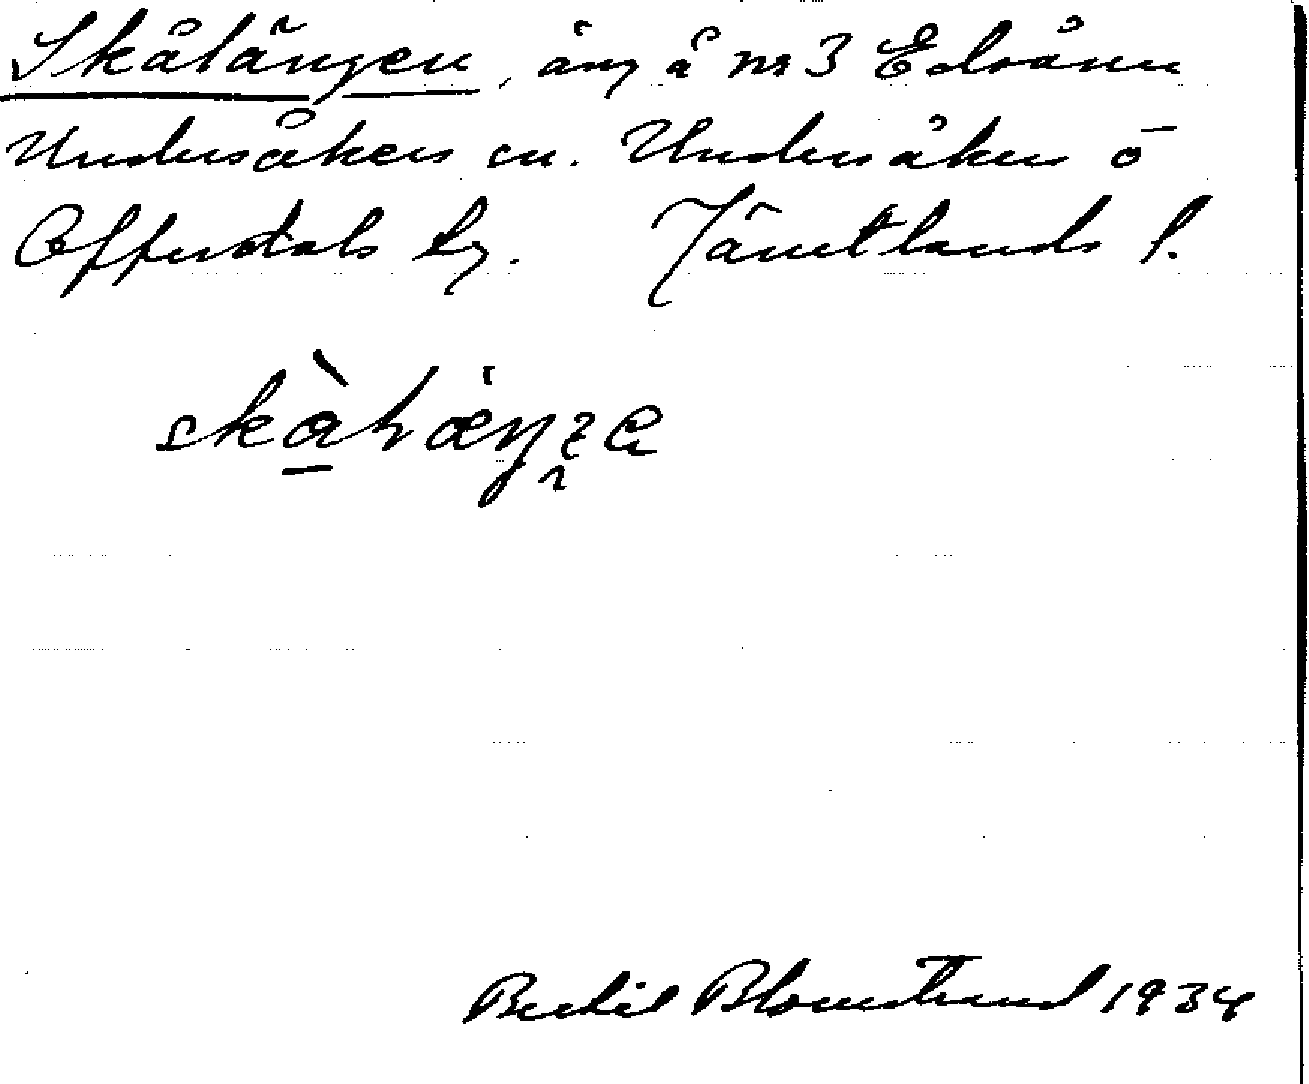 Skålängen, äng å nr 3 Edsåsen
Undersåkers sn. Undersåkers o
Offerdals tg. Jämtlands l.
Bertil Blomstrand 1934